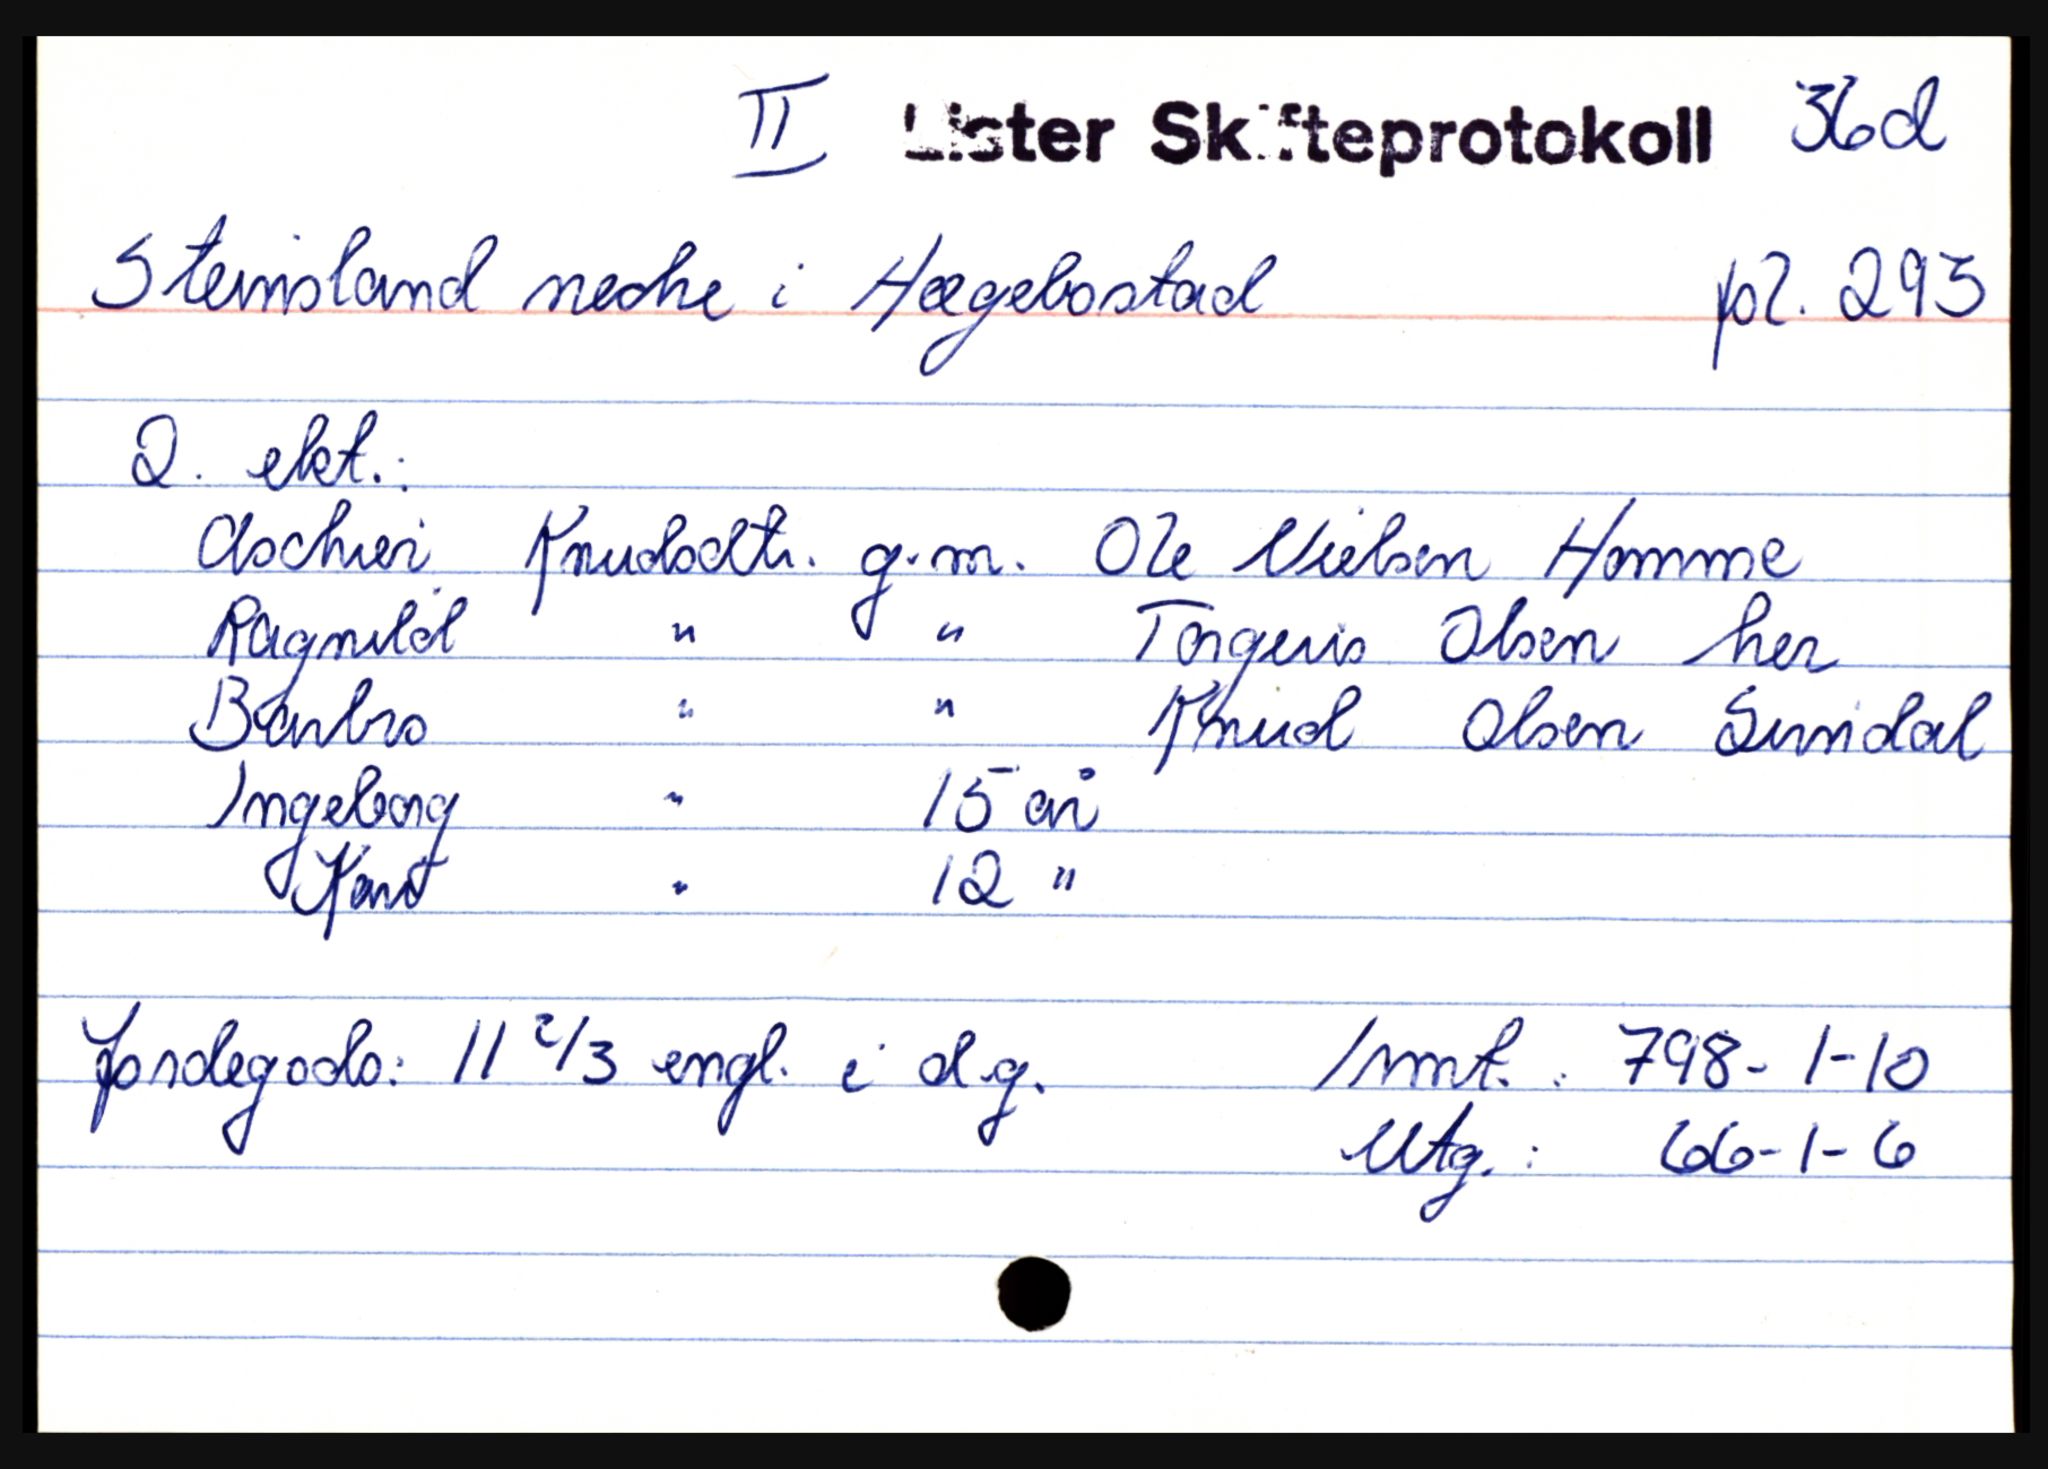 II Lister Skifteprotokoll 36d
Steinsland nedre i Hægebostad fol. 293
2. ekt.:
Aschier Knudsdtr. g.m. Ole Nielsen Homme
Ragnild " " Torgeus Olsen her
Barbro " " Knud Olsen Sundal
Ingeborg " 15 år
Kari " 12 "
Jordegods: 11 2/3 engl. i d.g. Innt.: 798-1-10
Utg.: 66-1-6